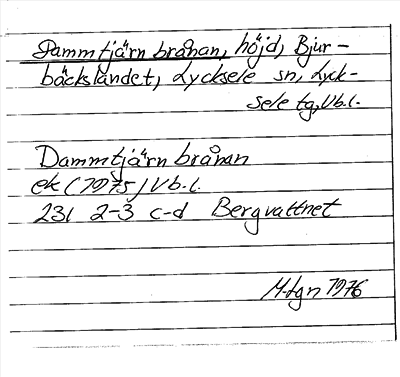 Dammtjärnbrånan, höjd, Bjur-
bäckslandet, Lycksele sn, Lyck-
sele tg, Vb.l.
Dammtjärnbrånan
ek (1975) Vb.l.
23I 2-3 c-d Bergvattnet
M-tgn 1976